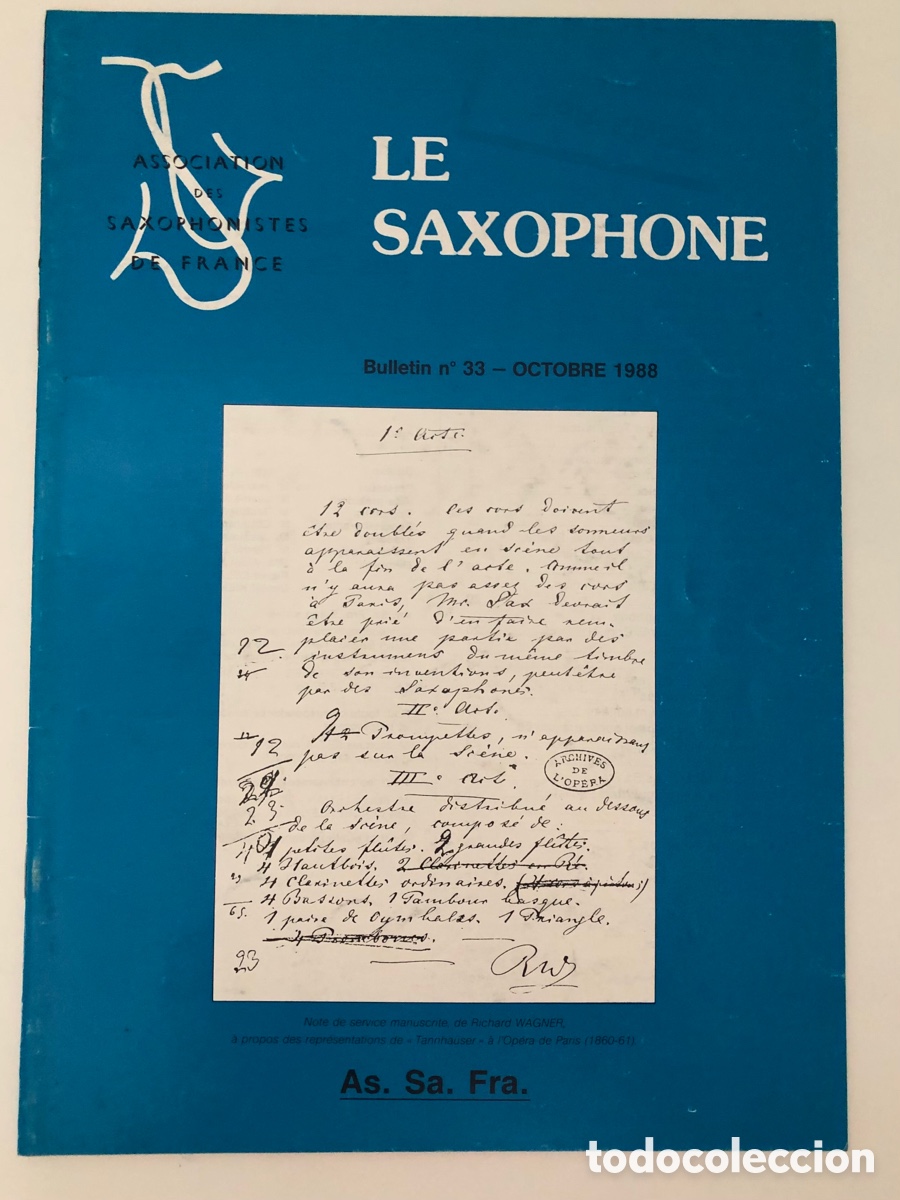 ASSOCIATION
DES
SAXOPHONISTES
DE FRANCE
LE
SAXOPHONE
Bulletin n° 33 – OCTOBRE 1988
1º Acte.
12 cors. Ces cors doivent
être doublés quand les sonneurs
apparaissent en scène tout
à la fin de l'acte. Comme il
n'y aura pas assez des cors
à Paris, Mr. Sax devrait
être prié d'en faire rem-
placer une partie par des
instrumens du même timbre
de son inventions, peutêtre
par des Saxophones.
IIº Act.
Trompettes, n'apparaissans
pas sur la Scène.
ARCHIVES
DE
L'OPÉRA
IIIº Act
Orchestre distribué au dessous
de la Scène, composé de:
petites flûtes. 2 grandes flûtes.
4 Hautbois. 2 Clarinettes en Ré.
4 Clarinettes ordinaires.
4 Bassons, 1 Tambour basque.
1 paire de Cymbales. 1 Triangle.
4 Trombones.
12
12
23
65
23
RW
Note de service manuscrite, de Richard WAGNER,
à propos des représentations de « Tannhäuser » à l'Opéra de Paris (1860-61)
As. Sa. Fra.
todocoleccion